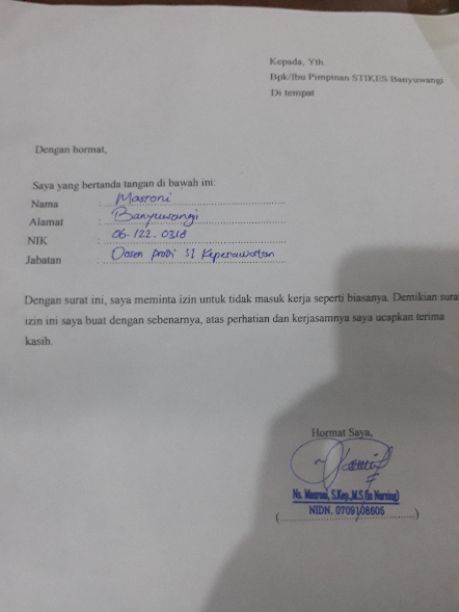 Kepada, Yth.
Bpk/Ibu Pimpinan STIKES Banyuwangi
Di tempat
Dengan hormat,
Saya yang bertanda tangan di bawah ini:
Nama : Masroni
Alamat : Banyuwangi
NIK : 06.122.0318
Jabatan : Dosen Prodi S1 Keperawatan
Dengan surat ini, saya meminta izin untuk tidak masuk kerja seperti biasanya. Demikian sura
izin ini saya buat dengan sebenarnya, atas perhatian dan kerjasamnya saya ucapkan terima
kasih.
Hormat Saya,
Ns. Masroni, S.Kep.,M.S.(in Nursing)
NIDN. 0709108605
(........................................)